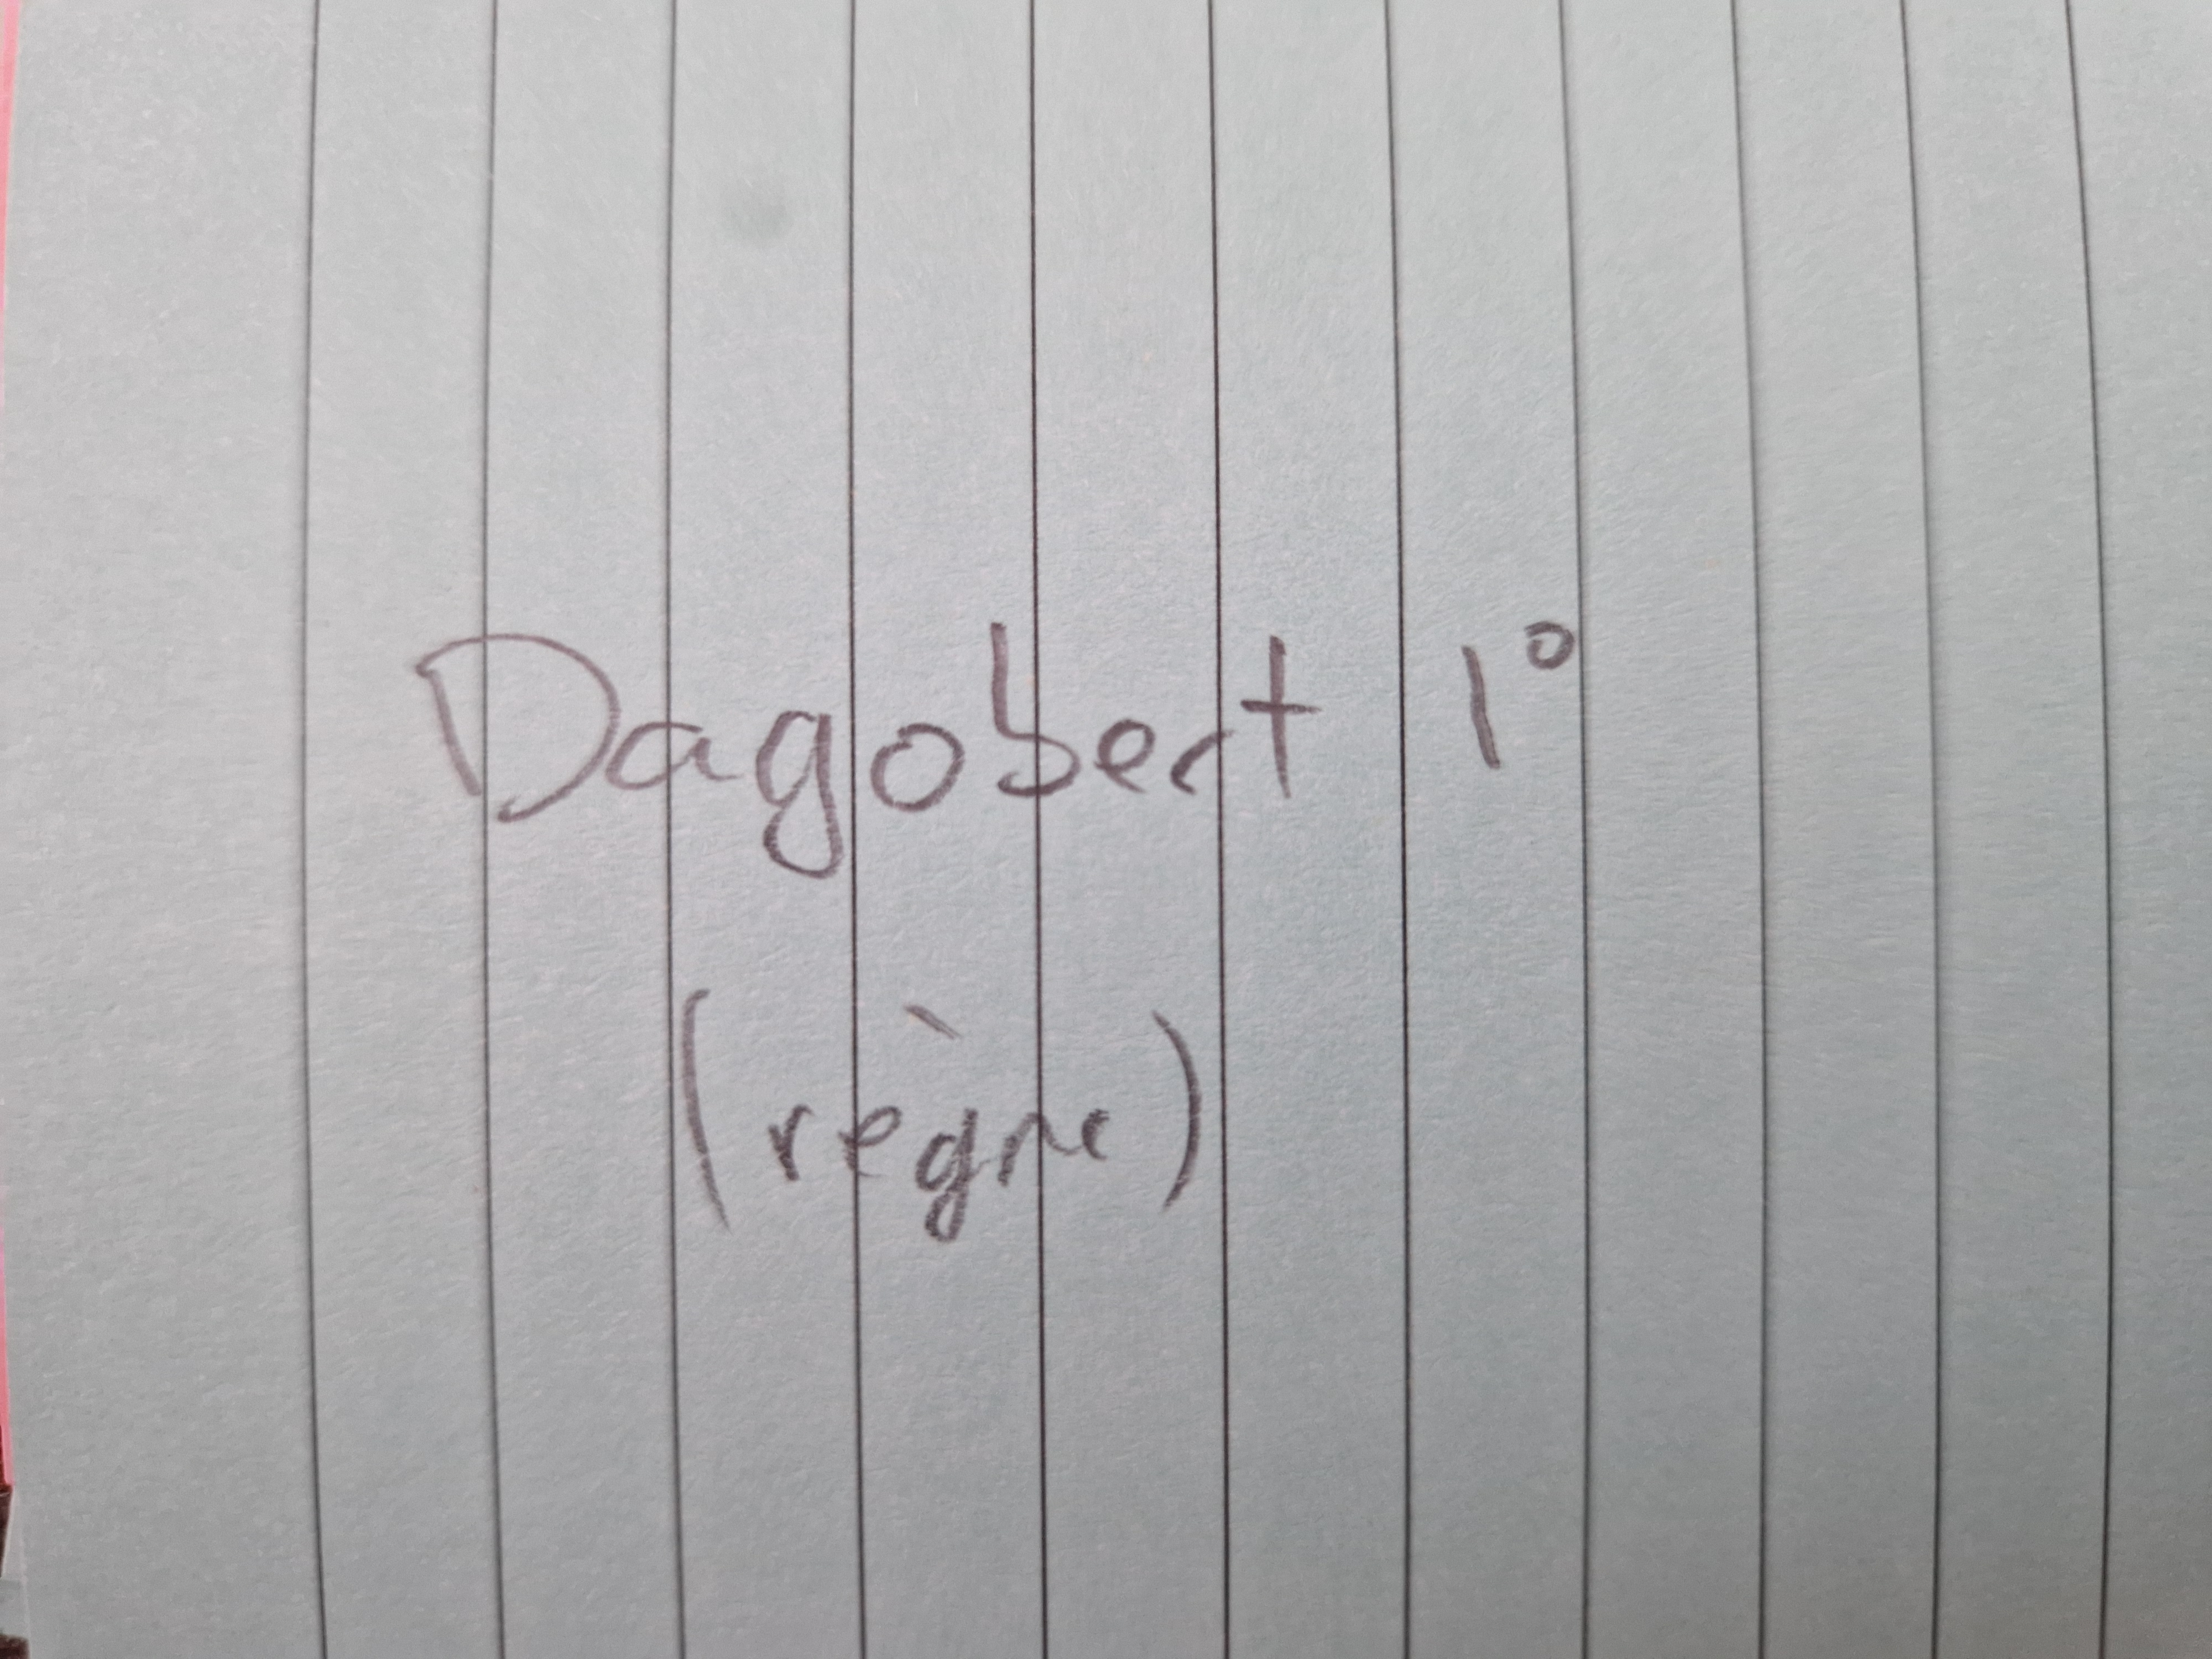 Dagobert 1°
(règne)